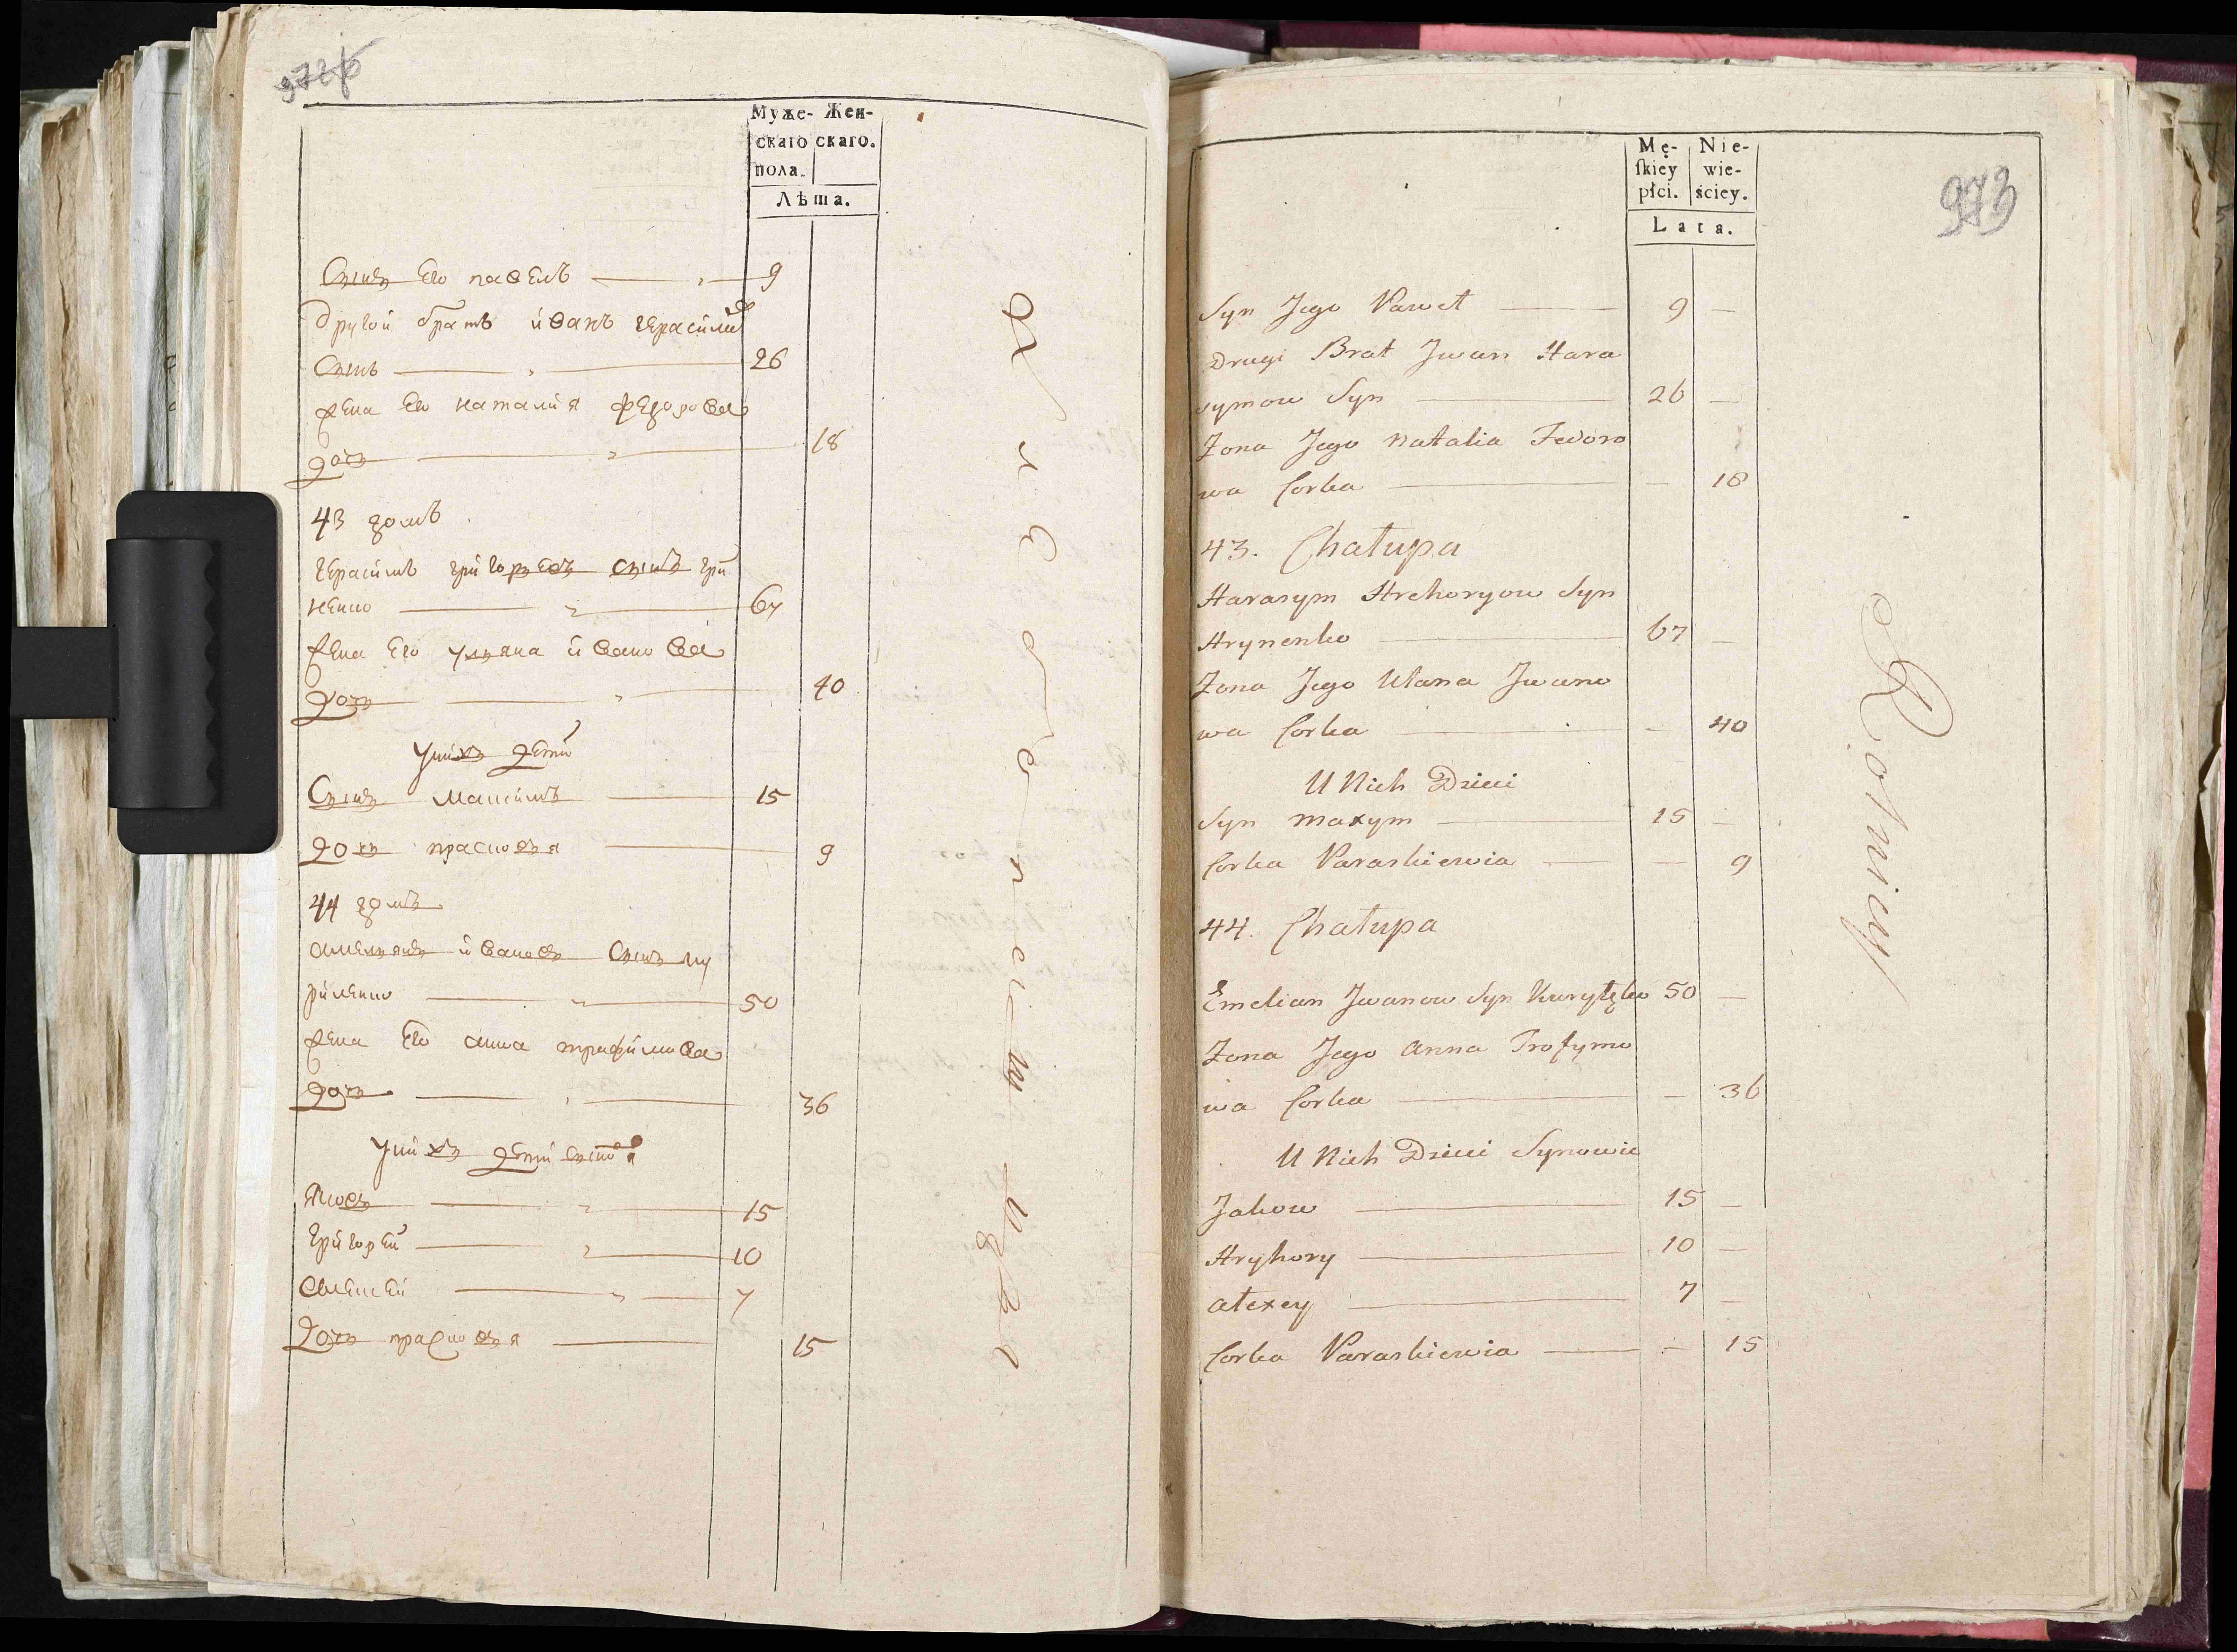 972 об
Муже- Жен-
скаго скаго.
пола.
Лѣта.
Сынъ Его павелъ 9
другой братъ иванъ герасимов
Сынъ 26
жена Его наталия федорова
дочь 18
43 домъ
герасимъ григорьевъ сынъ гри
ненко 67
жена Его ульяна иванова
дочь 40
у них дети
Сынъ максимъ 15
дочь прасковья 9
44 домъ
амельянъ ивановъ Сынъ ку
риленко 50
жена Его анна трафимова
дочь 36
у них дети сыновя
яковъ 15
григорей 10
алексей 7
дочь прасковья 15
973
Mę- Nie-
ſkiey wie-
płci. ściey.
Lata.
Syn Jego Paweł 9 —
Drugi Brat Jwan Hara
symow Syn 26 —
Zona Jego Natalia Fedoro
wa Corka — 18
43. Chałupa
Harasym Hrehoryow Syn
Hrynenko 67 —
Zona Jego Ulana Jwano
wa Corka — 40
U Nich Dzieci
Syn Maxym 15 —
Corka Paraskiewia — 9
44. Chałupa
Emelian Jwanow Syn Kurylęko 50 —
Zona Jego Anna Trofymo
wa Corka — 36
U Nich Dzieci Synowie
Jakow 15 —
Hryhory 10 —
Alexey 7
Corka Paraskiewia — 15
Rolnicy